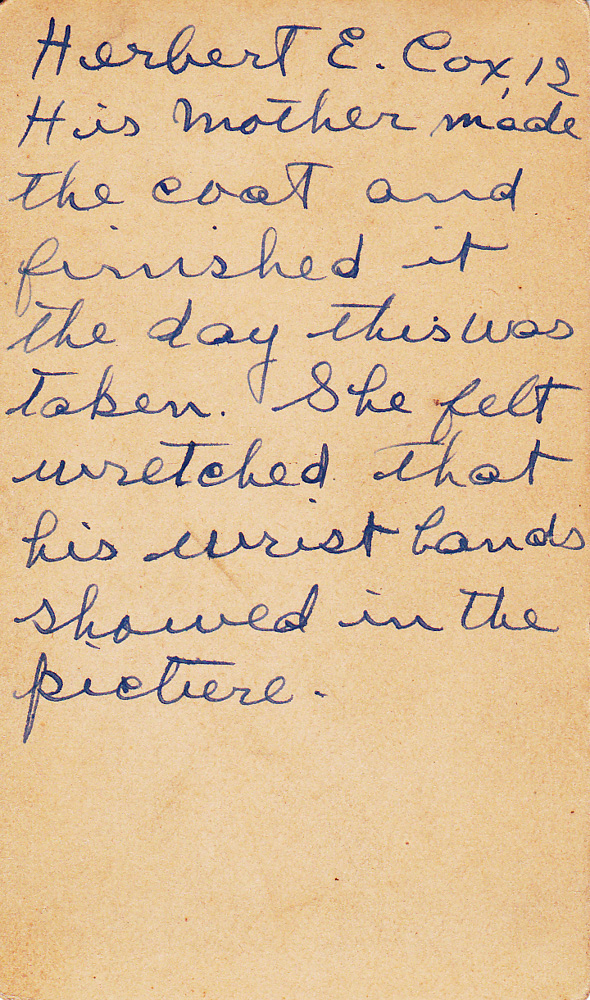 Herbert E. Cox, 12
His Mother made
the coat and
finished it
the day this was
taken. She felt
wretched that
his wrist bands
showed in the
picture.